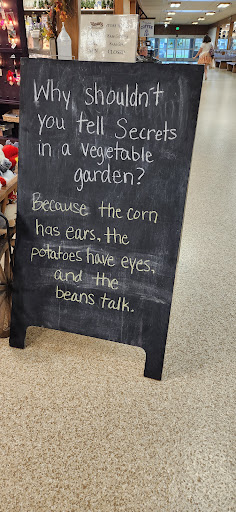 Why shouldn't
you tell Secrets
in a vegetable
garden?
Because the corn
has ears, the
potatoes have eyes,
and the
beans talk.